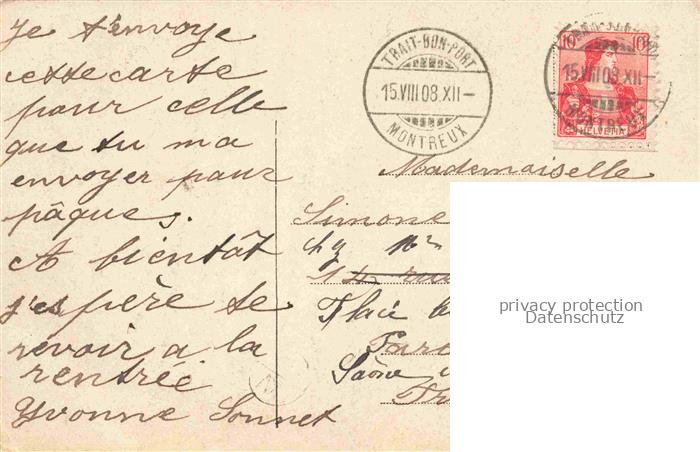 Je t'envoye
cette carte
pour celle
que tu ma
envoyer pour
pâques.
A bientôt
j'espère te
revoir a la
rentrée
Yvonne Sonnet
TRAIT-BON-PORT
15.VIII 08.XII–
MONTREUX
10 10
15.VIII 08.XII–
MONTREUX
HELVETIA
Mademoiselle
Simone
Place
Saône
privacy protection
Datenschutz